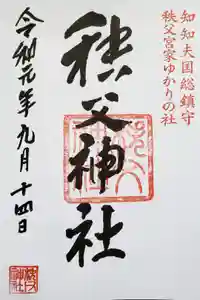 知知夫国総鎮守
秩父宮家ゆかりの社
秩父神社
令和元年九月十四日